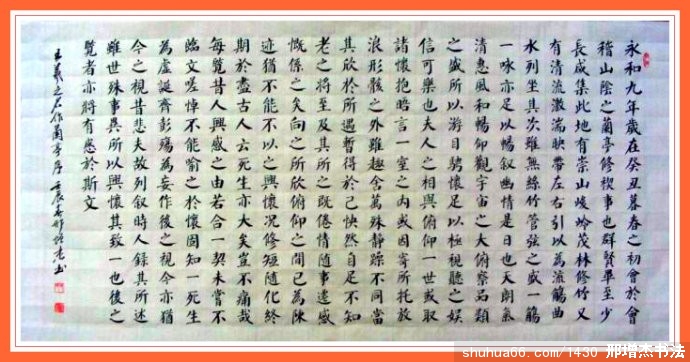 永和九年歲在癸丑暮春之初會於會
稽山陰之蘭亭修禊事也群賢畢至少
長咸集此地有崇山峻岭茂林修竹又
有清流激湍映帶左右引以為流觴曲
水列坐其次雖無絲竹管弦之盛一觴
一咏亦足以暢叙幽情是日也天朗氣
清惠風和暢仰觀宇宙之大俯察品類
之盛所以游目騁懷足以極視聽之娛
信可樂也夫人之相與俯仰一世或取
諸懷抱晤言一室之内或因寄所托放
浪形骸之外雖趣舍萬殊静躁不同當
其欣於所遇暫得於己快然自足不知
老之將至及其所之既倦情隨事遷感
慨係之矣向之所欣俯仰之間已為陳
迹猶不能不以之興懷況修短隨化終
期於盡古人云死生亦大矣豈不痛哉
每覽昔人興感之由若合一契未嘗不
臨文嗟悼不能喻之於懷固知一死生
為虛誕齊彭殤為妄作後之視今亦猶
今之視昔悲夫故列叙時人録其所述
雖世殊事異所以興懷其致一也後之
覽者亦將有感於斯文
王羲之 作蘭亭序 壬辰春邢增杰书
shuhua66.com/1430 邢增杰书法